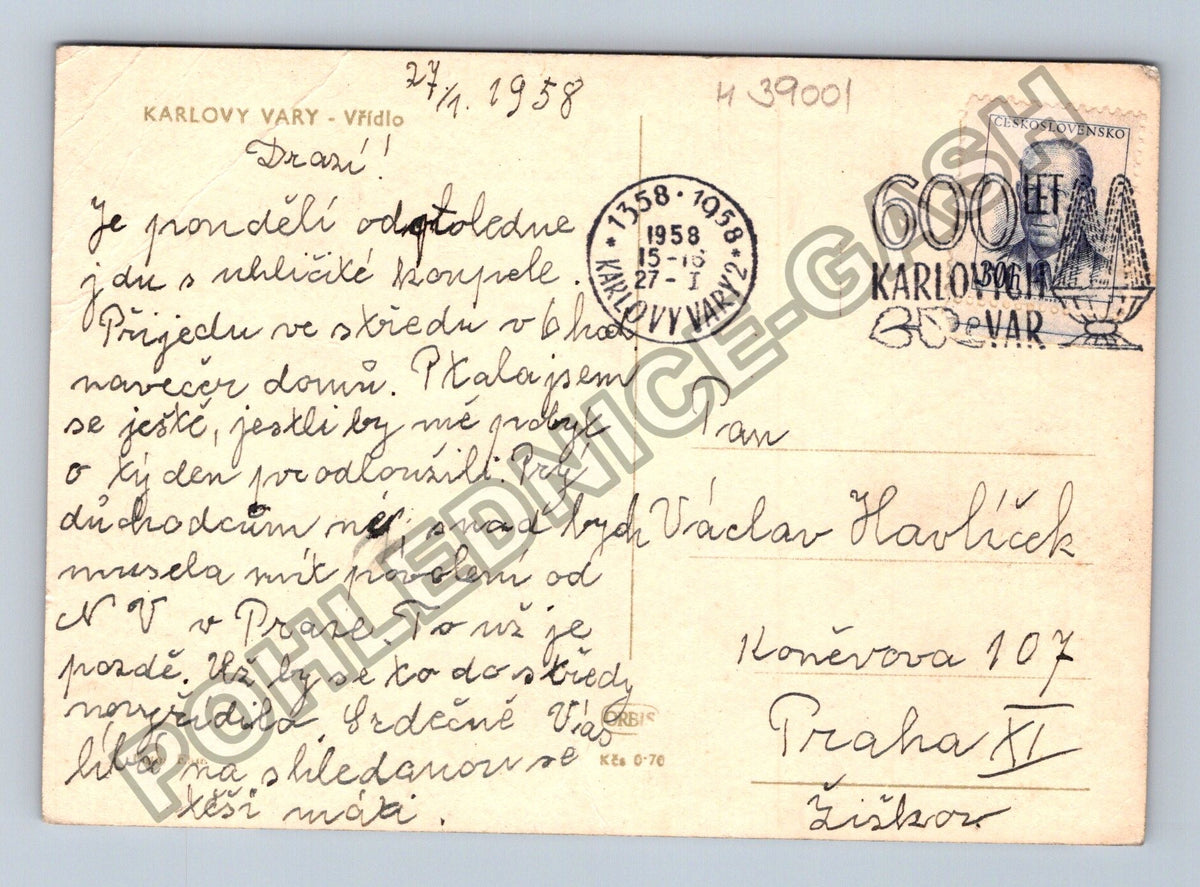 27/1. 1958
H 39001
KARLOVY VARY - Vřídlo
Drazí!
Je pondělí odpoledne
jdu s uhličité koupele.
Přijedu ve středu v 6 hod
navečer domů. Ptala jsem
se ještě, jestli by mé pobyt
o týden prodloužili. Prý
důchodcům ne, snad bych
musela mít povolení od
N V v Praze. To už je
pozdě. Už by se to do středy
nevyřídilo. Srdečně Vás
líbá na shledanou se
těší máti.
ČESKOSLOVENSKO
1358 · 1958
1958
15-16
27-I
KARLOVY VARY 2
600 LET
KARLOVÝCH
VAR
30h
Pan
Václav Havlíček
Koněvova 107
Praha XI
Žižkov
ORBIS
Kčs 0·70
POHLEDNICE-GASH